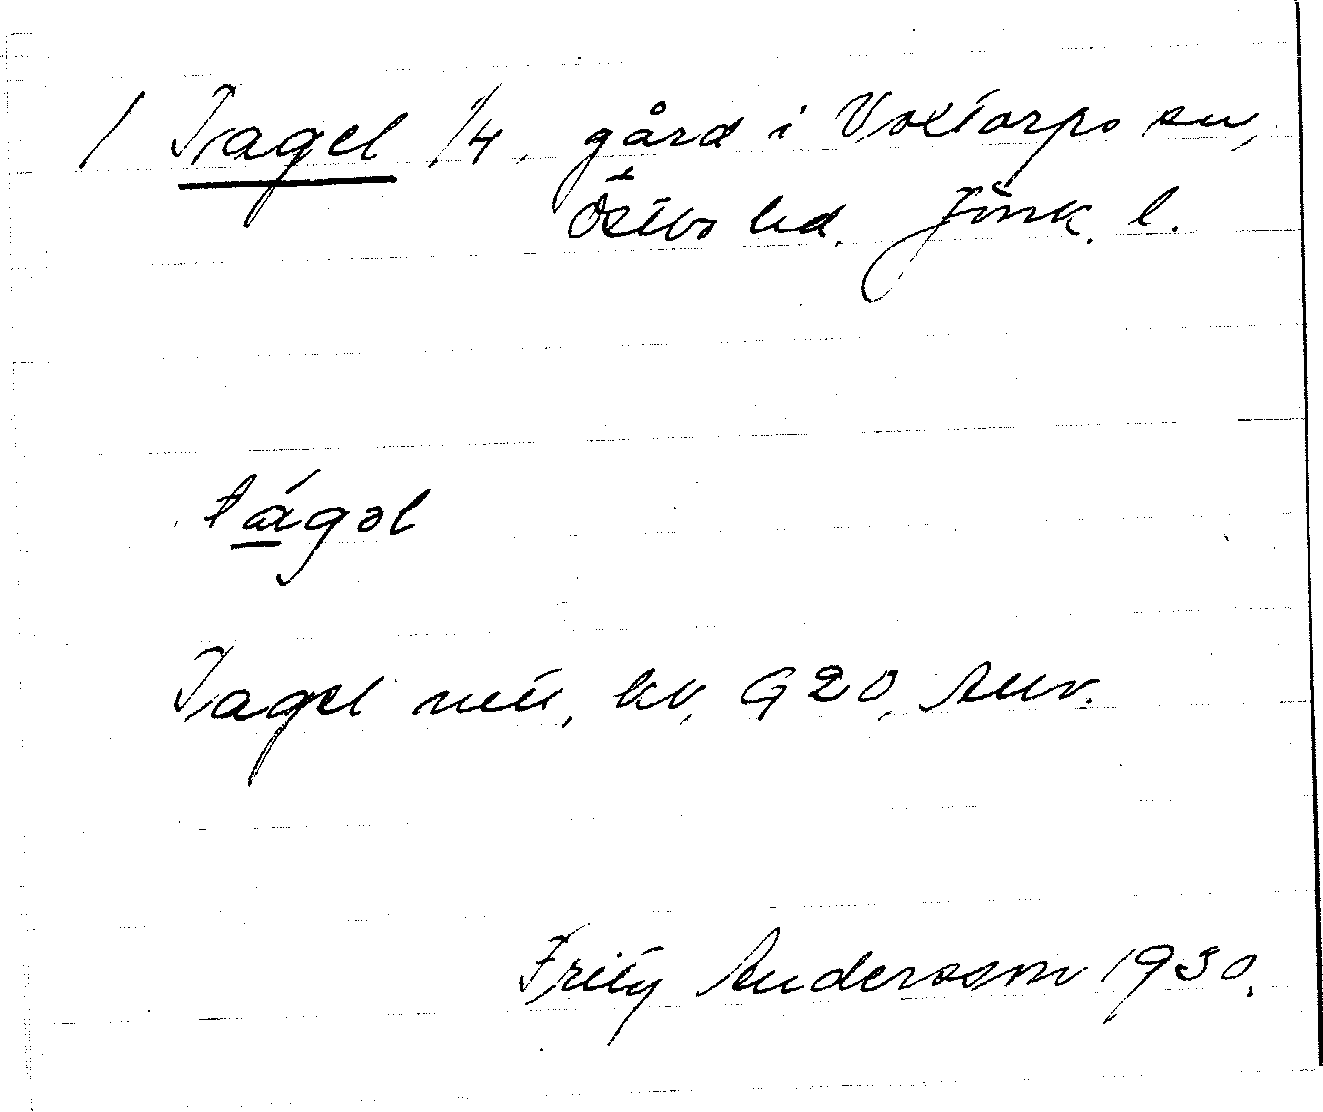 / Tagel 1/4, gård i Voxtorps sn,
Östbo hd. Jönk. l.
tágəl
Tagel hv, G20,
Fritz Andersson 1930.